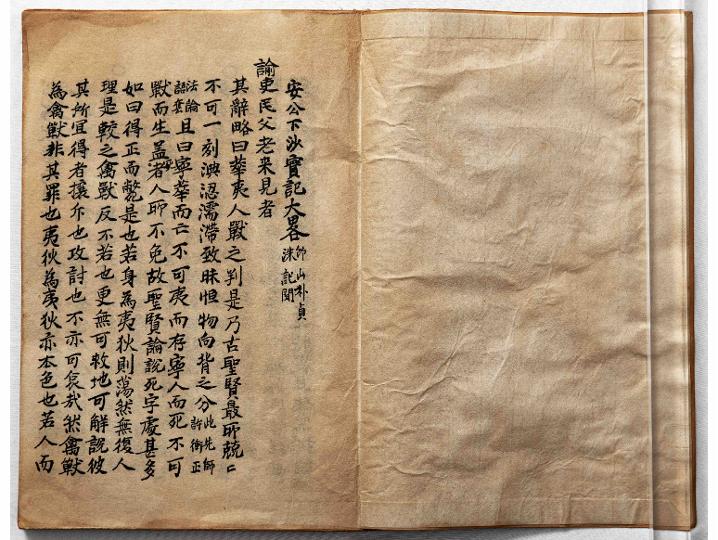 安公下沙寶記大畧 師山朴貞洙記聞
諭吏民父老来見者
其辭略曰華夷人獸之判是乃古聖賢最所兢〻
不可一刻淟涊濡滯致昧恒物向背之分此先師許衡正
法論語蓋且曰寧華而亡不可夷而存寧人而死不可
獸而生盖渚人所不免故聖賢論說死字處甚多
如曰得正而斃是也若身為夷狄則蕩然無復人
理是較之禽獸反不若也更無可救地可解說彼
其所宜得者攘斥也攻討也不亦可哀哉然禽獸
為禽獸非其罪也夷狄為夷狄亦本色也若人而